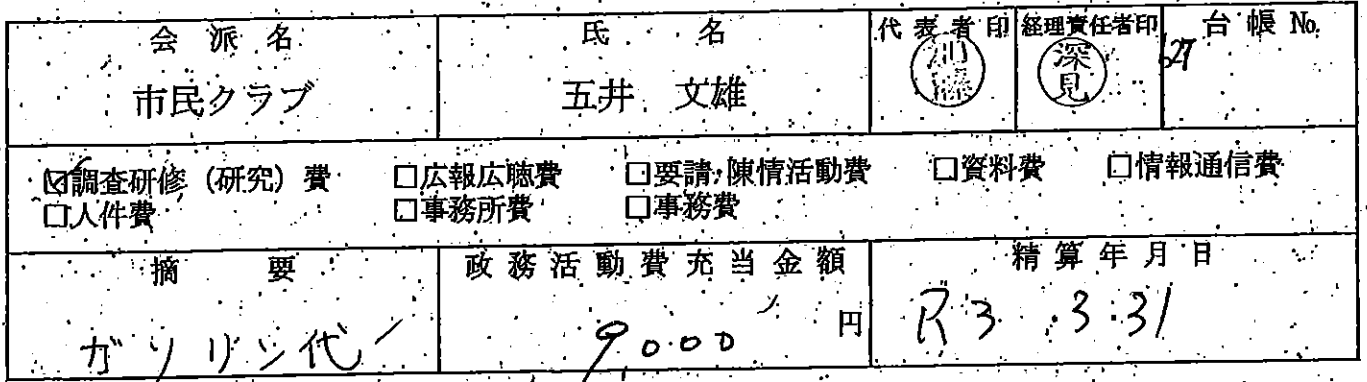 会派名 氏名 代表者印 経理責任者印 台帳No.
市民クラブ 五井 文雄 加藤 深見 627
☑調査研修(研究)費 □広報広聴費 □要請・陳情活動費 □資料費 □情報通信費
□人件費 □事務所費 □事務費
摘要 政務活動費充当金額 精算年月日
ガソリン代 9,000円 R3.3.31